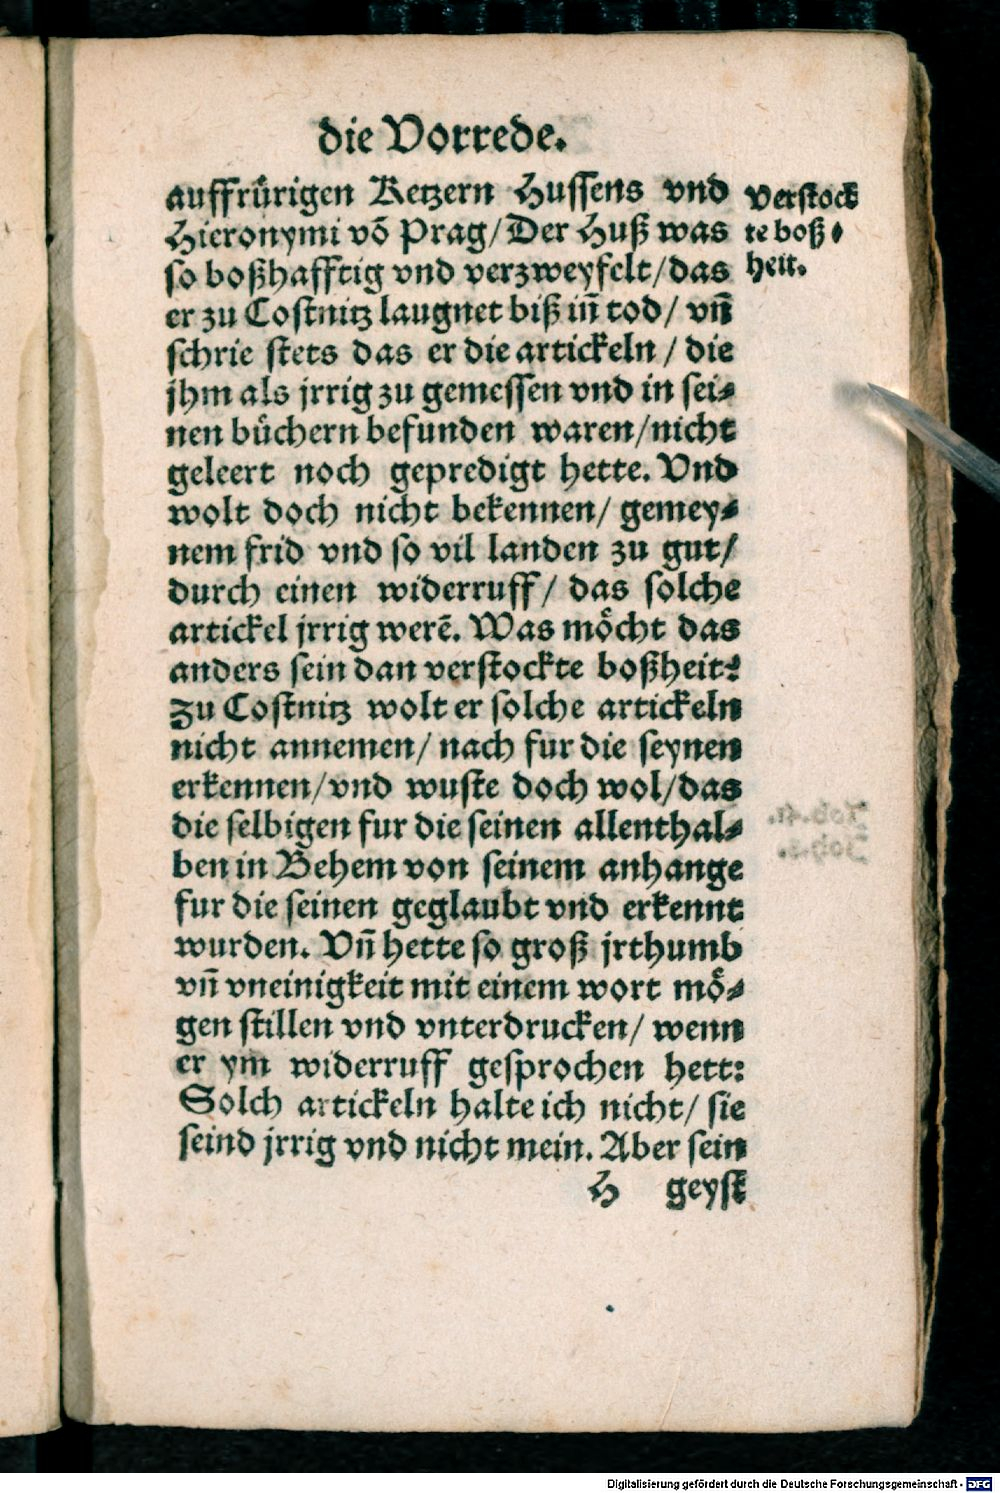 die Vorrede.
auffruͤrigen Ketzern Hussens vnd
Hieronymi võ Prag/Der Huß was
so boßhafftig vnd verzweyfelt/das
er zu Costnitz laugnet biß iñ tod/ vñ
schrie stets das er die artickeln / die
jhm als jrrig zu gemessen vnd in sei⸗
nen buͤchern befunden waren/nicht
geleert noch gepredigt hette. Vnd
wolt doch nicht bekennen/ gemey⸗
nem frid vnd so vil landen zu gut/
durch einen widerruff/ das solche
artickel jrrig werẽ. Was moͤcht das
anders sein dan verstockte boßheit?
Zu Costnitz wolt er solche artickeln
nicht annemen/ nach fur die seynen
erkennen/vnd wuste doch wol/das
die selbigen fur die seinen allenthal⸗
ben in Behem von seinem anhange
fur die seinen geglaubt vnd erkennt
wurden. Vñ hette so groß jrthumb
vñ vneinigkeit mit einem wort moͤ⸗
gen stillen vnd vnterdrucken/ wenn
er ym widerruff gesprochen hett:
Solch artickeln halte ich nicht/ sie
seind jrrig vnd nicht mein. Aber sein
H geyst
Verstock
te boß⸗
heit.
Digitalisierung gefördert durch die Deutsche Forschungsgemeinschaft - DFG